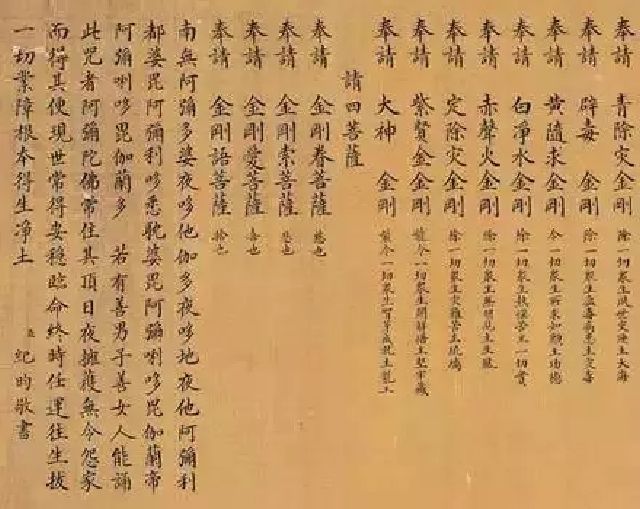 奉請 青除灾金剛 除一切衆生宿世灾殃主大海
奉請 辟毒 金剛 除一切衆生瘟毒病患主灾毒
奉請 黄隨求金剛 令一切衆生所求如願主功德
奉請 白淨水金剛 除一切衆生熱惱苦主一切寶
奉請 赤聲火金剛 除一切衆生無明見主生風
奉請 定除灾金剛 除一切衆生灾難苦主琉璃
奉請 紫賢金金剛 能令一切衆生開解悟主堅牢藏
奉請 大神 金剛 能令一切衆生智芽成就主龍王
請四菩薩
奉請 金剛眷菩薩 慈也
奉請 金剛索菩薩 悲也
奉請 金剛愛菩薩 喜也
奉請 金剛語菩薩 捨也
南無阿彌多婆夜哆他伽多夜哆地夜他阿彌利
都婆毘阿彌利哆悉耽婆毘阿彌唎哆毘伽蘭帝
阿彌唎哆毘伽蘭多 若有善男子善女人能誦
此咒者阿彌陀佛常住其頂日夜擁護無令怨家
而得其便現世常得安穩臨命終時任運往生拔
一切業障根本得生淨土 臣 紀昀敬書